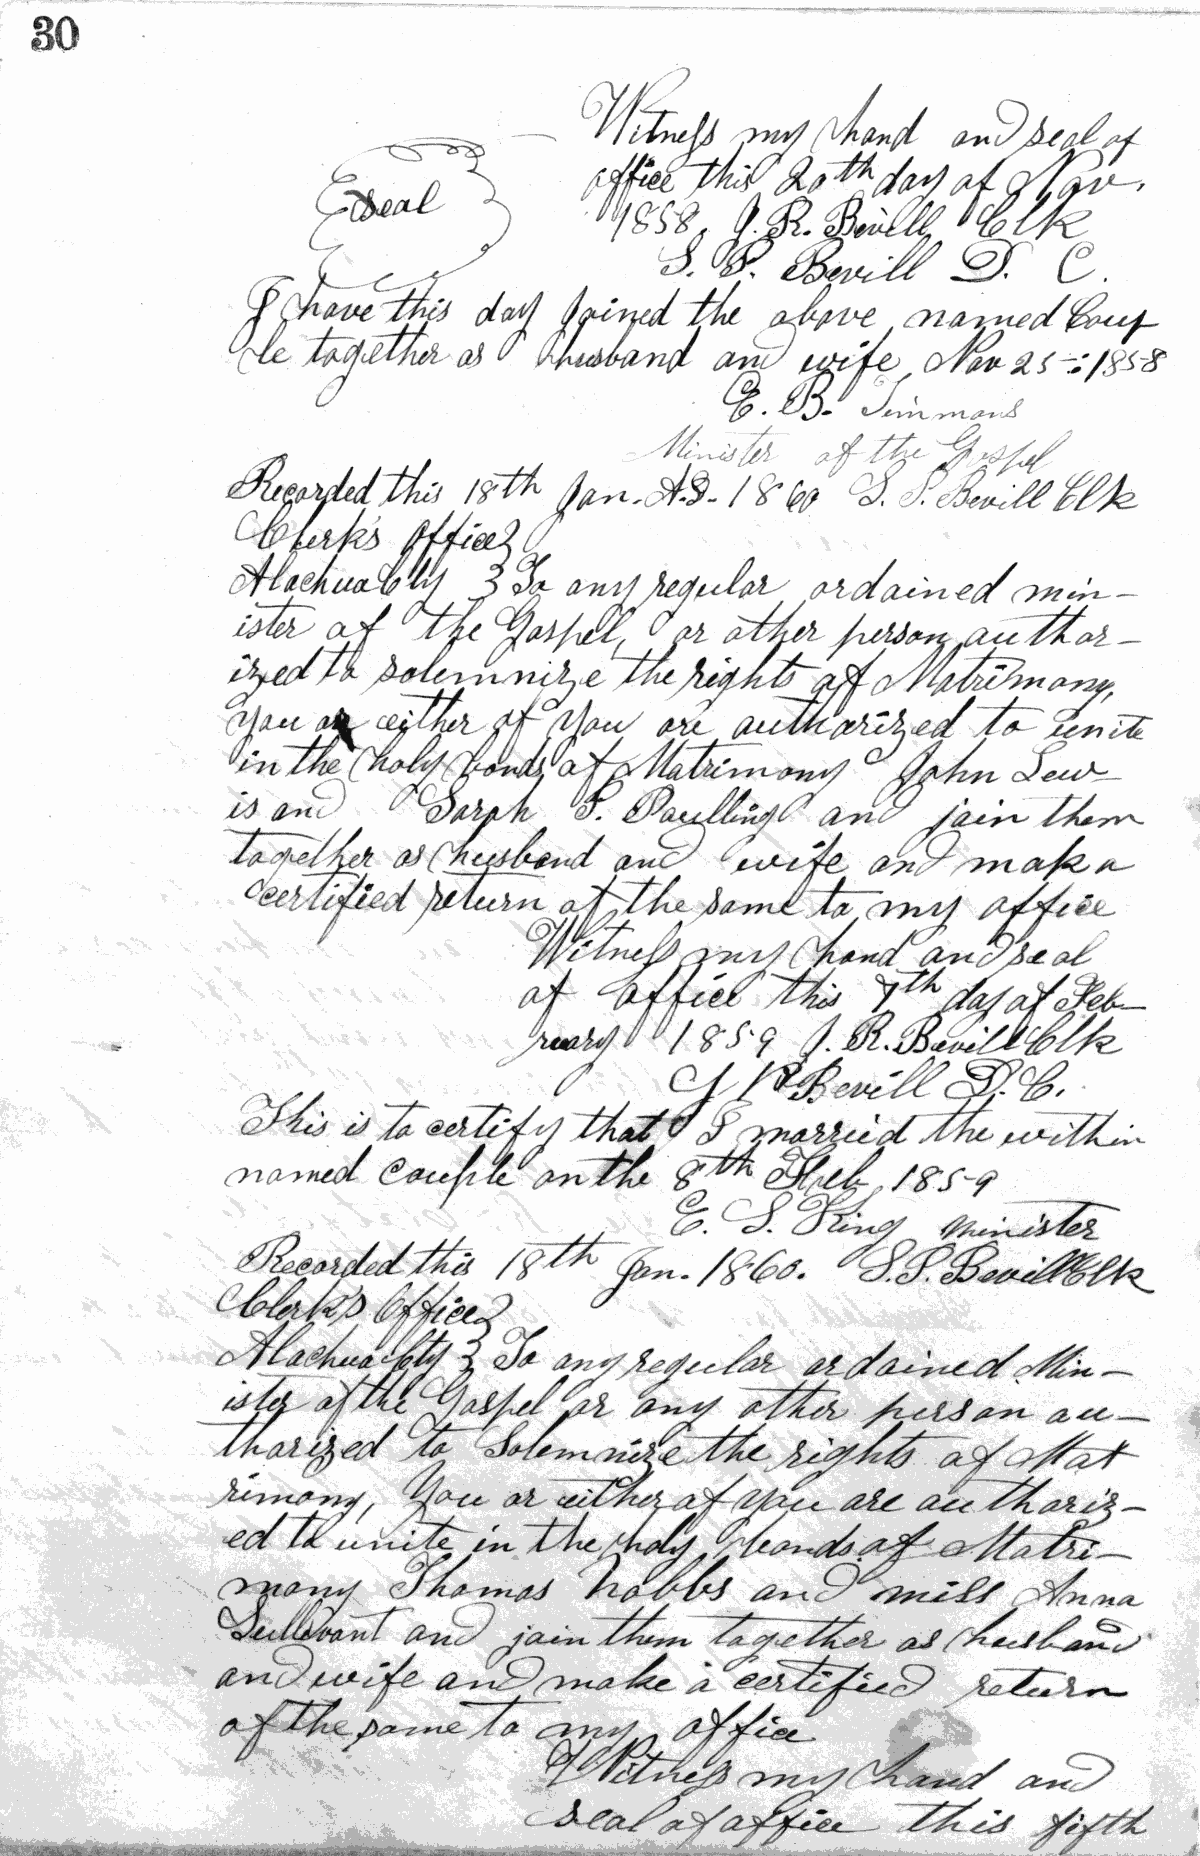 30
Witness my hand and seal of
office this 20th day of Nov.
Seal
1858, J. R. Bevill Clk
S. P. Bevill D. C.
I have this day joined the above named Coup
le together as husband and wife, Nov 25-:1858
E. B. Timmons
Minister of the Gospel
Recorded this 18th Jan. A.D. 1860 S. P. Bevill Clk
Clerk's Office
Alachua Cty } To any regular ordained min-
ister of the Gospel, or other person author-
ized to solemnize the rights of Matrimony,
You or either of You are authorized to unite
in the holy bonds of Matrimony John Lew
is and Sarah S. Paulling and join them
together as husband and wife and make a
certified return of the same to my office
Witness my hand and seal
of office this 7th day of Feb-
ruary 1859 J. R. Bevill Clk
Bevill D. C.
This is to certify that I married the within
named Couple on the 8th Feb, 1859
E. S. King minister
Recorded this 18th Jan. 1860. S. P. Bevill Clk
Clerk's Office
Alachua Cty } To any regular ordained Min-
ister of the Gospel or any other person au-
thorized to Solemnize the rights of Mat
rimony, You or either of you are authoriz-
ed to unite in the holy bonds of Matri-
mony Thomas hobbs and miss Anna
Sullivant and join them together as husband
and wife and make a certified return
of the same to my office
Witness my hand and
seal of office this fifth